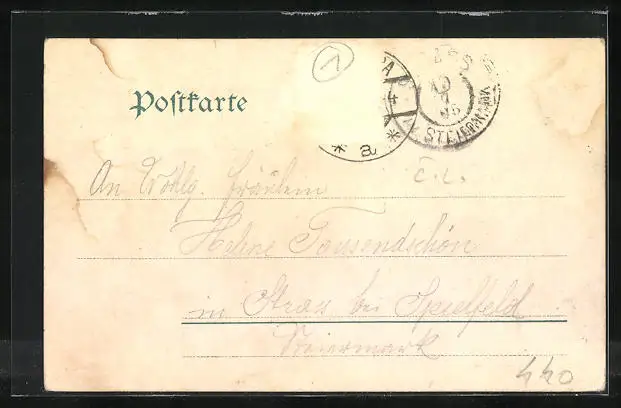 1
Postkarte
STEIERMARK
* a *
C. L.
An Wohlg. Fräulein
Helene Tausendschön
in Strass bei Spielfeld
Steiermark
440